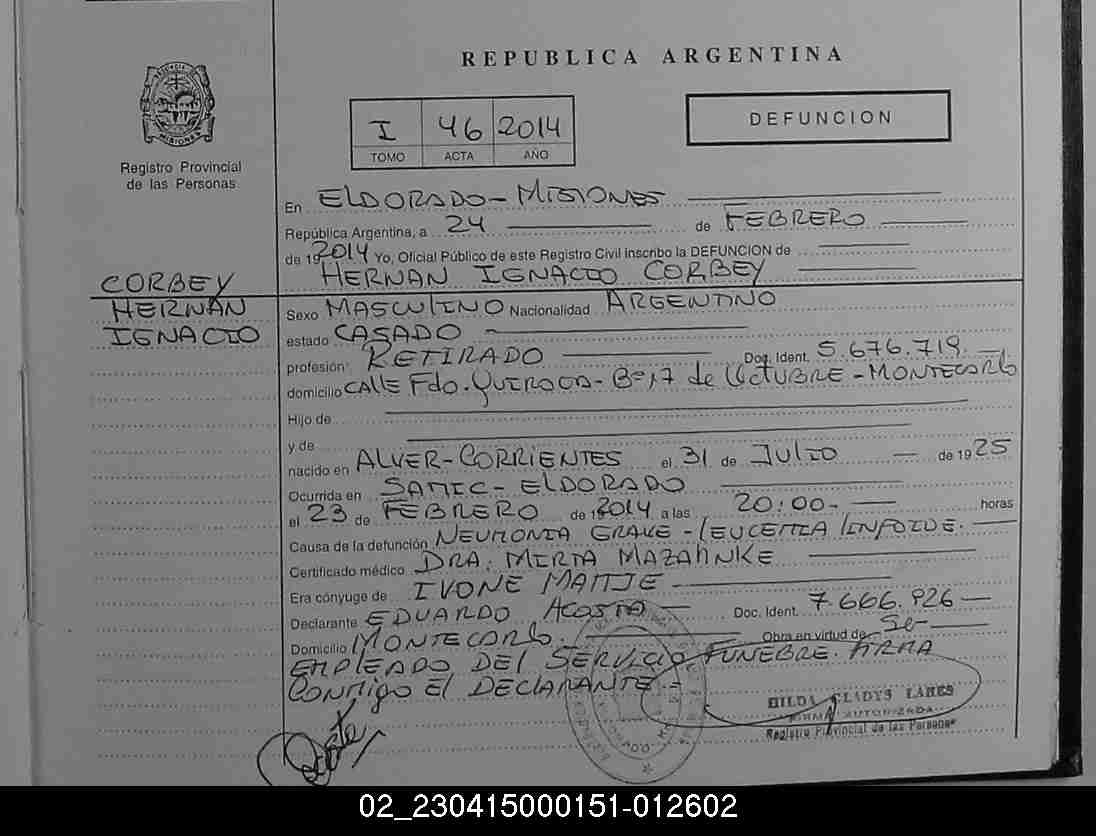 REPUBLICA ARGENTINA
PROVINCIA DE MISIONES
Registro Provincial
de las Personas
I 46 2014
TOMO ACTA AÑO
DEFUNCION
En ELDORADO-MISIONES
República Argentina, a 24 de FEBRERO
de 19 2014 Yo, Oficial Público de este Registro Civil inscribo la DEFUNCION de
HERNAN IGNACIO CORBEY
CORBEY
HERNAN
IGNACIO
Sexo MASCULINO Nacionalidad ARGENTINO
estado CASADO
profesión RETIRADO Doc. Ident. 5.676.719.
domicilio CALLE Fdo. QUIROGA- Bº 17 de OCTUBRE - MONTECARLO
Hijo de
y de
nacido en ALVER-CORRIENTES el 31 de JULIO de 19 25
Ocurrida en SAMIC- ELDORADO
el 23 de FEBRERO de 19 2014 a las 20:00- horas
Causa de la defunción NEUMONIA GRAVE - LEUCEMIA LINFOIDE.
Certificado médico DRA. MIRTA MAZAHNKE
Era cónyuge de IVONE MATTJE
Declarante EDUARDO ACOSTA Doc. Ident. 7.666.926
Domicilio MONTECARLO. Obra en virtud de Se-
EMPLEADO DEL SERVICIO FUNEBRE. FIRMA
CONMIGO El DECLARANTE.-
HILDA GLADYS LARES
FIRMA AUTORIZADA
Registro Provincial de las Personas
02_230415000151-012602